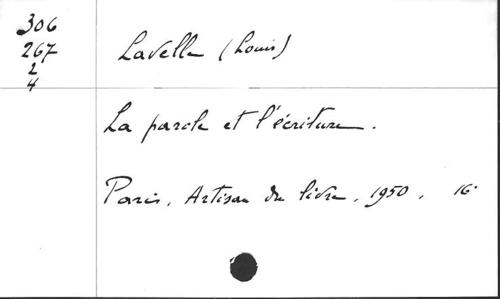 306
267
2
4
Lavelle (Louis)
La parole et l'écriture.
Paris, Artisan du livre, 1950, 16°